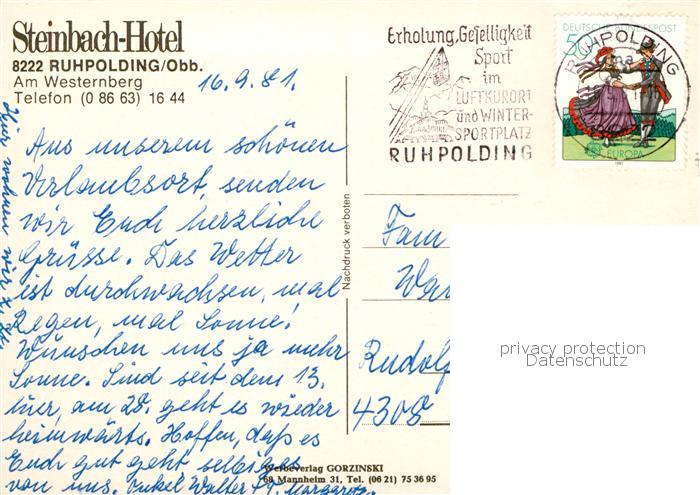 Steinbach-Hotel
8222 RUHPOLDING/Obb.
Am Westernberg
Telefon (0 86 63) 16 44
16.9.81.
Aus unserem schönen
Urlaubsort, senden
wir Euch herzliche
Grüsse. Das Wetter
ist durchwachsen, mal
Regen, mal Sonne!
Wünschen uns ja mehr
Sonne. Sind seit dem 13.
hier, am 28. geht es wieder
heimwärts. Hoffen, daß es
Euch gut geht selbiges
von uns. Onkel Walter + T. Margarete.
Hier wohnen wir
Nachdruck verboten
Werbeverlag GORZINSKI
68 Mannheim 31, Tel. (06 21) 75 36 95
Erholung, Geselligkeit
Sport
im
LUFTKURORT
und WINTER-
SPORTPLATZ
RUHPOLDING
DEUTSCHE BUNDESPOST
50
RUHPOLDING
EUROPA
1981
Fam
Rudolf
4308
privacy protection
Datenschutz